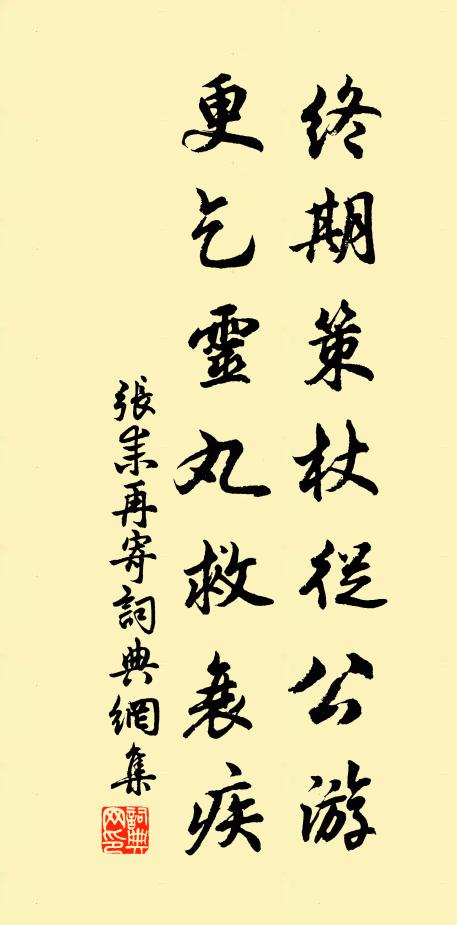 終期策杖從公游
更乞靈丸救衰疾
張耒再寄詞典網集
詞典網印